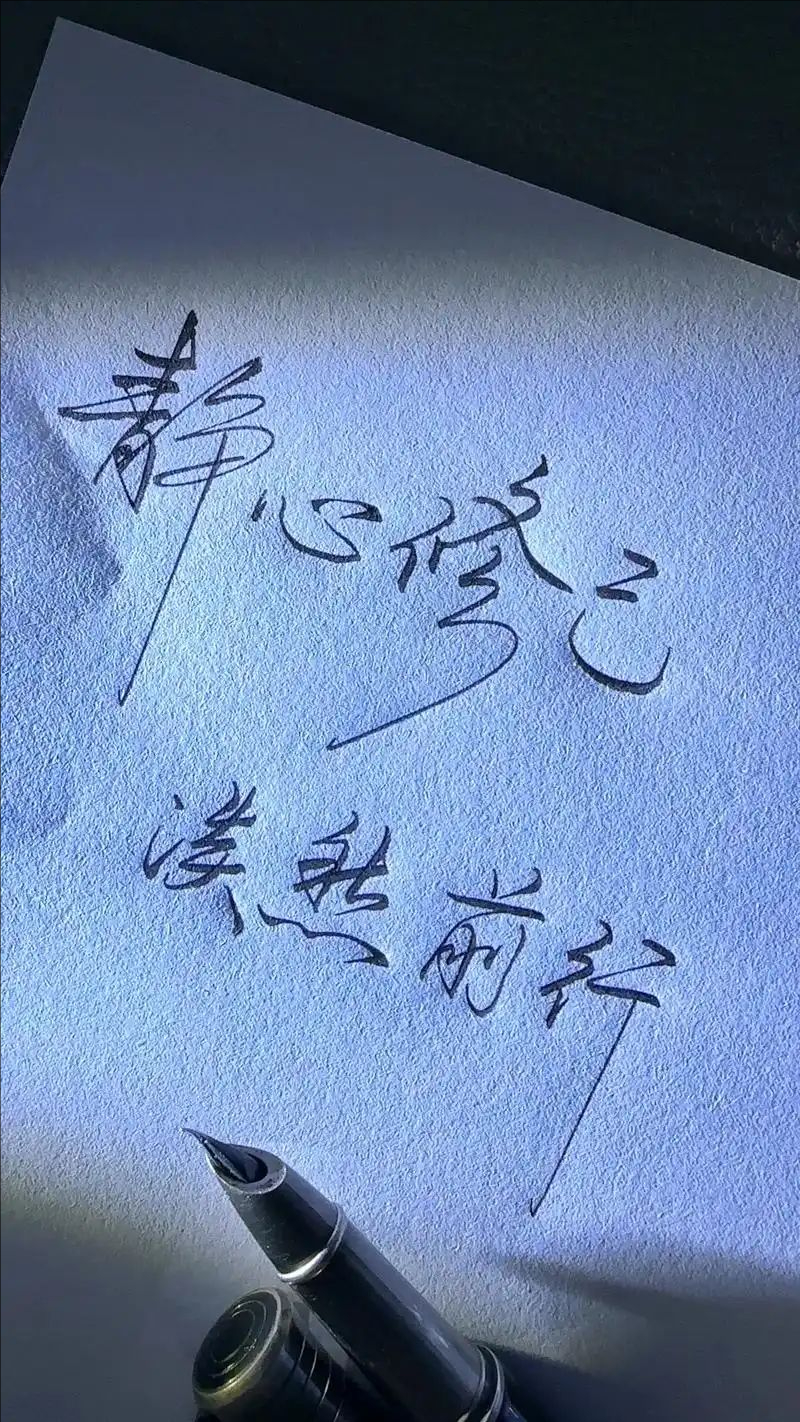 静心修己
淡然前行